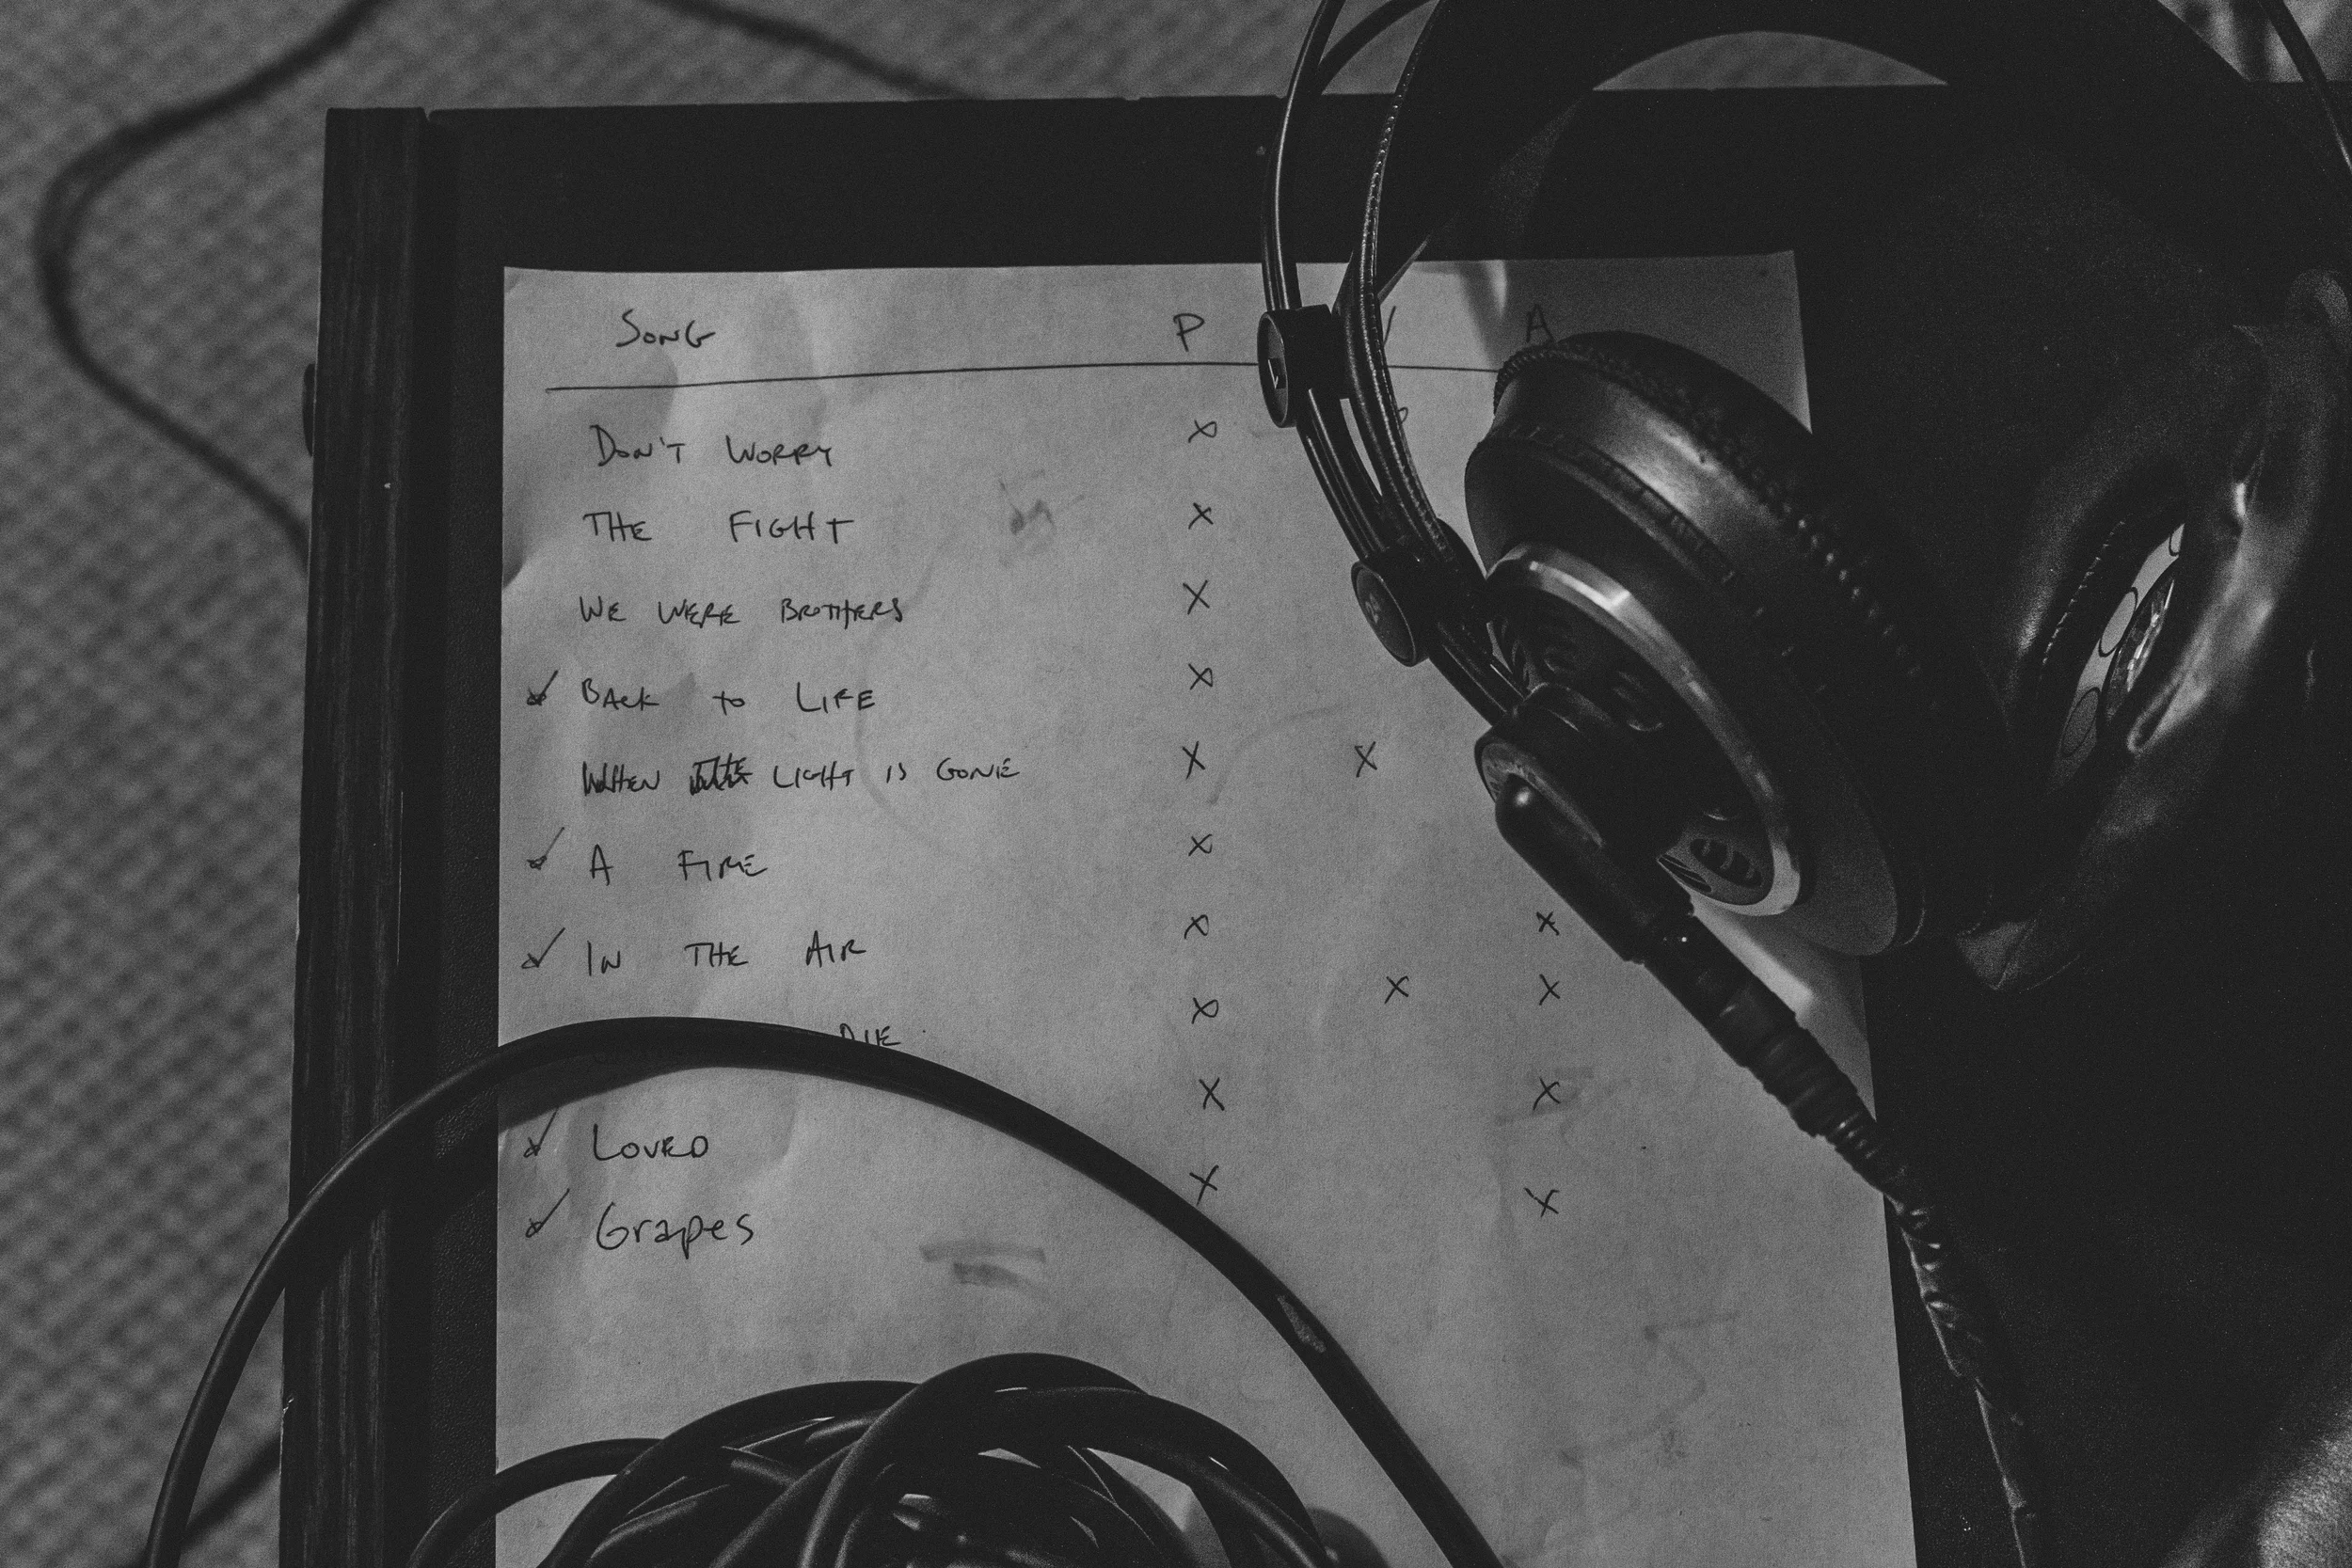 SONG P A
DON'T WORRY X
THE FIGHT X
WE WERE BROTHERS X
✓ BACK TO LIFE X
WHEN THE LIGHT IS GONE X X
✓ A FIRE X
✓ IN THE AIR X X
DIE X X X
✓ LOVED X X
✓ Grapes X X